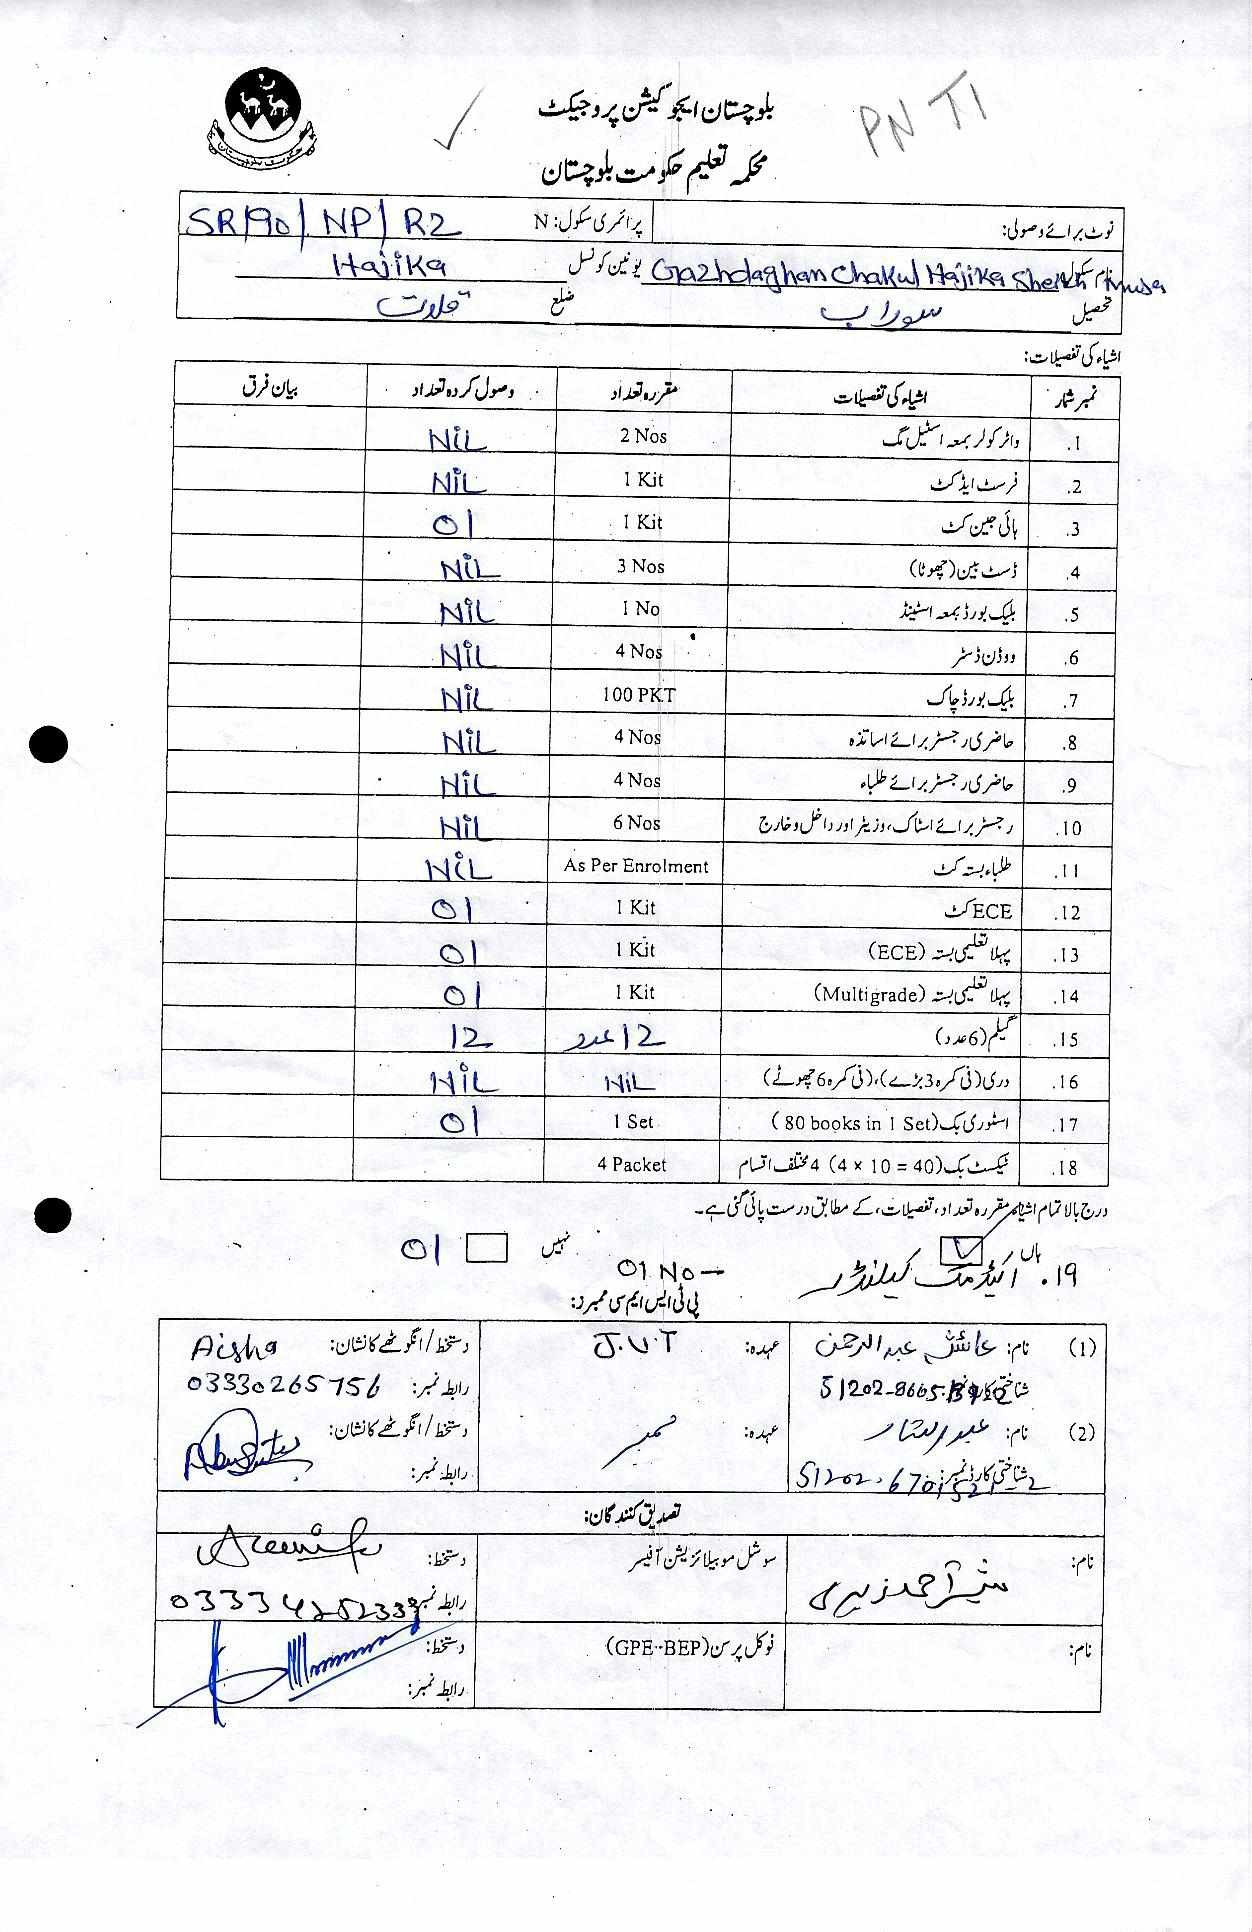 بلوچستان ایجوکیشن پروجیکٹ
PN TI
محکمہ تعلیم حکومت بلوچستان
نوٹ برائے وصولی: پرائمری سکول: N SR/90/NP/R2
نام سکول Gazhdaghan Chakul Hajika Sheikh Musa یونین کونسل Hajika
تحصیل سوراب ضلع قلات
اشیاء کی تفصیلات:
نمبر شمار اشیاء کی تفصیلات مقررہ تعداد وصول کردہ تعداد بیان فرق
1. واٹر کولر بمعہ اسٹیل مگ 2 Nos NiL
2. فرسٹ ایڈ کٹ 1 Kit NiL
3. ہائی جین کٹ 1 Kit 01
4. ڈسٹ بین (چھوٹا) 3 Nos NiL
5. بلیک بورڈ بمعہ اسٹینڈ 1 No NiL
6. ووڈن ڈسٹر 4 Nos NiL
7. بلیک بورڈ چاک 100 PKT NiL
8. حاضری رجسٹر برائے اساتذہ 4 Nos NiL
9. حاضری رجسٹر برائے طلباء 4 Nos NiL
10. رجسٹر برائے اسٹاک، وزیٹر اور داخل و خارج 6 Nos NiL
11. طلباء بستہ کٹ As Per Enrolment NiL
12. ECE کٹ 1 Kit 01
13. پہلا تعلیمی بستہ (ECE) 1 Kit 01
14. پہلا تعلیمی بستہ (Multigrade) 1 Kit 01
15. گیلم (6 عدد) 12 عدد 12
16. دری (فی کمرہ 3 بڑے)، (فی کمرہ 6 چھوٹے) NiL NiL
17. اسٹوری بک (80 books in 1 Set) 1 Set 01
18. ٹیکسٹ بک (4 × 10 = 40) 4 مختلف اقسام 4 Packet
درج بالا تمام اشیاء مقررہ تعداد، تفصیلات، کے مطابق درست پائی گئی ہے۔
ہاں نہیں
19. اکیڈمک کیلنڈر 01 No— 01
پی ٹی ایس ایم سی ممبرز:
(1) نام: عائشہ عبدالرحمن عہدہ: J.V.T دستخط/انگوٹھے کا نشان: Aisha
شناختی کارڈ نمبر: 51202-8665 رابطہ نمبر: 03330265756
(2) نام: عبدالستار عہدہ: ممبر دستخط/انگوٹھے کا نشان:
شناختی کارڈ نمبر: 51202-6701521-2 رابطہ نمبر:
تصدیق کنندگان:
نام: سوشل موبیلائزیشن آفیسر دستخط:
رابطہ نمبر: 03334252339
نام: فوکل پرسن (GPE-BEP) دستخط:
رابطہ نمبر: